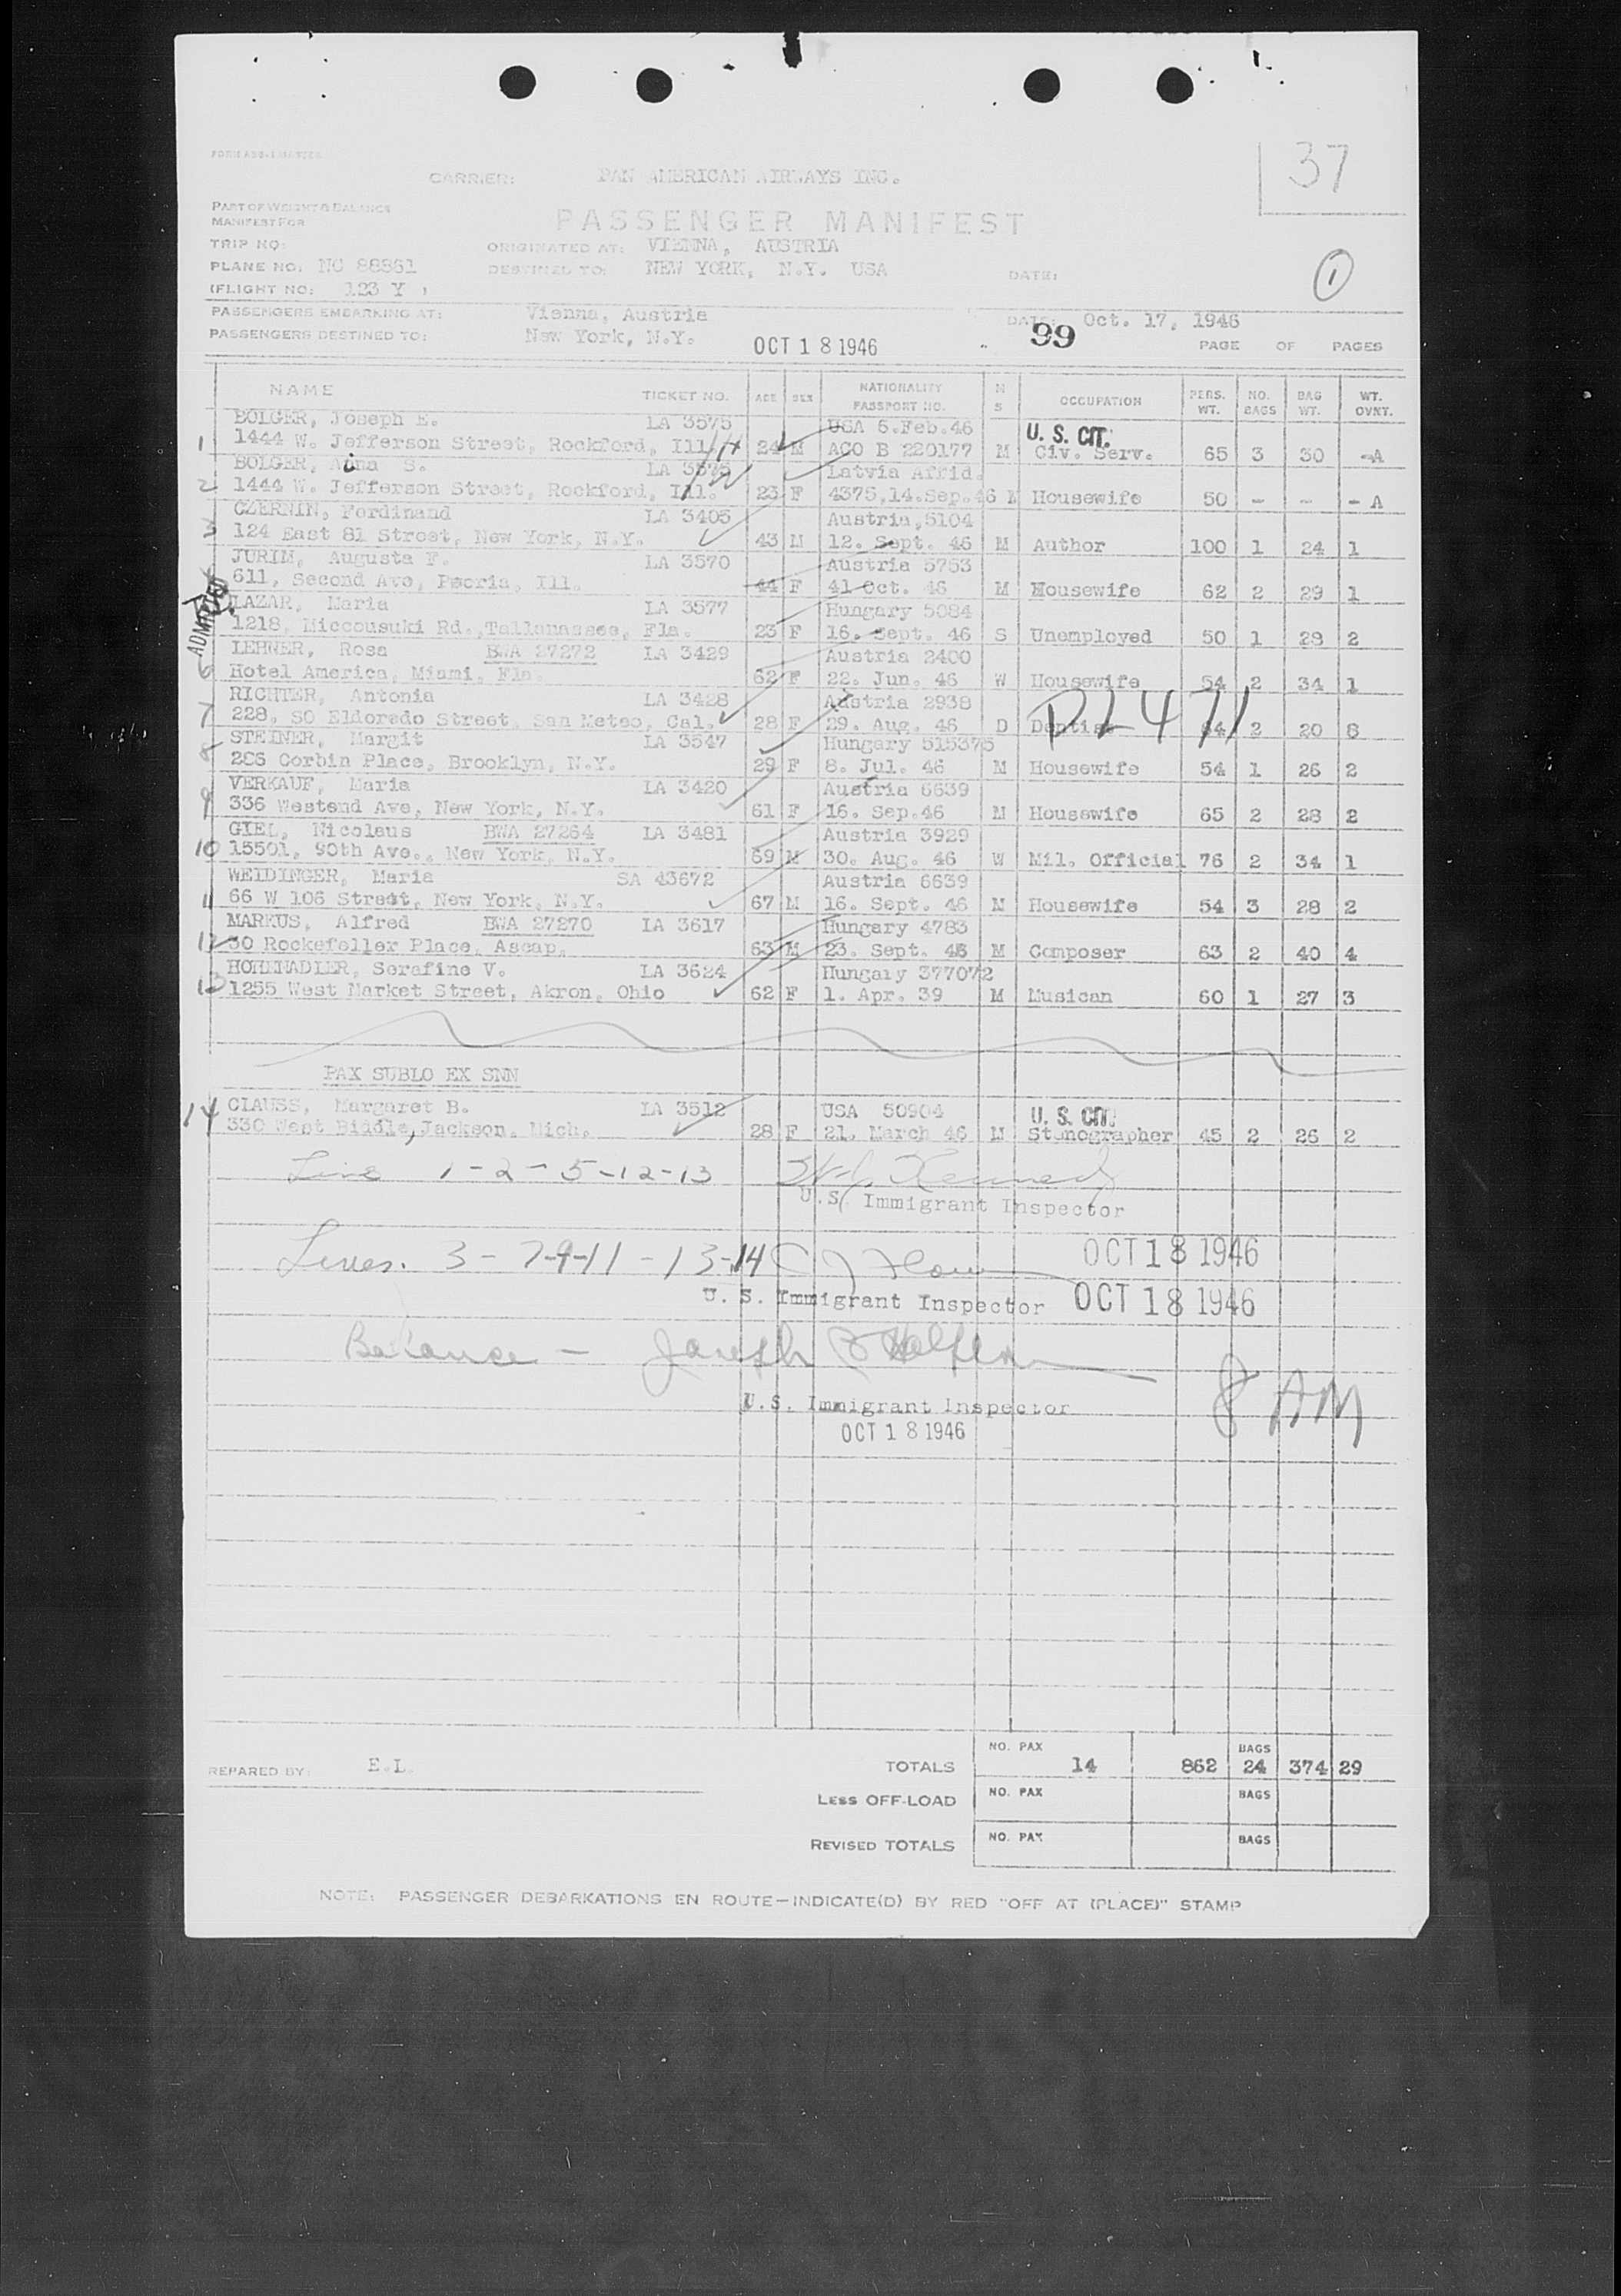 37
CARRIER: PAN AMERICAN AIRWAYS INC.
PART OF WEIGHT & BALANCE
MANIFEST FOR
PASSENGER MANIFEST
TRIP NO: ORIGINATED AT: VIENNA, AUSTRIA
PLANE NO: NC 88861 DESTINED TO: NEW YORK, N.Y. USA DATE: 1
(FLIGHT NO: 123 Y )
PASSENGERS EMBARKING AT: Vienna, Austria DATE: Oct. 17, 1946
PASSENGERS DESTINED TO: New York, N.Y. OCT 18 1946 99 PAGE OF PAGES
NAME TICKET NO. AGE SEX NATIONALITY PASSPORT NO. M S OCCUPATION PERS. WT. NO. BAGS BAG WT. WT. OVNT.
BOLGER, Joseph E. LA 3575 USA 6.Feb.46 U. S. CIT.
1 1444 W. Jefferson Street, Rockford, Ill. 24 M AGO B 220177 M Civ. Serv. 65 3 30 -A
BOLGER, Aina S. LA 3576 Latvia Affid.
2 1444 W. Jefferson Street, Rockford, Ill. 23 F 4375,14.Sep.46 M Housewife 50 - - - A
CZERNIN, Ferdinand LA 3405 Austria,5104
3 124 East 81 Street, New York, N.Y. 43 M 12. Sept. 46 M Author 100 1 24 1
JURIM, Augusta F. LA 3570 Austria 5753
611, Second Ave, Peoria, Ill. 44 F 41 Oct. 46 M Housewife 62 2 29 1
ADMITTED
LAZAR, Maria LA 3577 Hungary 5084
1218, Miccousuki Rd.,Tallanassee, Fla. 23 F 16. Sept. 46 S Unemployed 50 1 28 2
LEHNER, Rosa BWA 27272 LA 3429 Austria 2400
6 Hotel America, Miami, Fla. 62 F 22. Jun. 46 W Housewife 54 2 34 1
RICHTER, Antonia LA 3428 Austria 2938
7 228, SO Eldorado Street, San Mateo, Cal. 28 F 29. Aug. 46 D Dentist 64 2 20 8
PL 471
STEINER, Margit LA 3547 Hungary 515375
8 286 Corbin Place, Brooklyn, N.Y. 29 F 8. Jul. 46 M Housewife 54 1 26 2
VERKAUF, Maria LA 3420 Austria 6639
9 336 Westend Ave, New York, N.Y. 61 F 16. Sep.46 M Housewife 65 2 28 2
GIEL, Nicolaus BWA 27264 LA 3481 Austria 3929
10 15501, 90th Ave., New York, N.Y. 69 M 30. Aug. 46 W Mil. Official 76 2 34 1
WEIDINGER, Maria SA 43672 Austria 6639
11 66 W 106 Street, New York, N.Y. 67 M 16. Sept. 46 M Housewife 54 3 28 2
MARKUS, Alfred BWA 27270 LA 3617 Hungary 4783
12 30 Rockefeller Place, Ascap. 63 M 23. Sept. 46 M Composer 63 2 40 4
HOTENADLER, Serafine V. LA 3624 Hungary 377072
13 1255 West Market Street, Akron, Ohio 62 F 1. Apr. 39 M Musican 60 1 27 3
PAX SUBLO EX SNN
CLAUSS, Margaret B. LA 3512 USA 50904 U. S. CIT.
14 330 West Biddle, Jackson, Mich. 28 F 21. March 46 M Stenographer 45 2 26 2
Line 1-2-5-12-13 Kennedy
U.S. Immigrant Inspector
Lines. 3-7-9-11-13-14 OCT 18 1946
U. S. Immigrant Inspector OCT 18 1946
Balance - Joseph
U.S. Immigrant Inspector 8 AM
OCT 18 1946
REPARED BY: E.L. TOTALS NO. PAX 14 862 BAGS 24 374 29
LESS OFF-LOAD NO. PAX BAGS
REVISED TOTALS NO. PAX BAGS
NOTE: PASSENGER DEBARKATIONS EN ROUTE—INDICATE(D) BY RED "OFF AT (PLACE)" STAMP